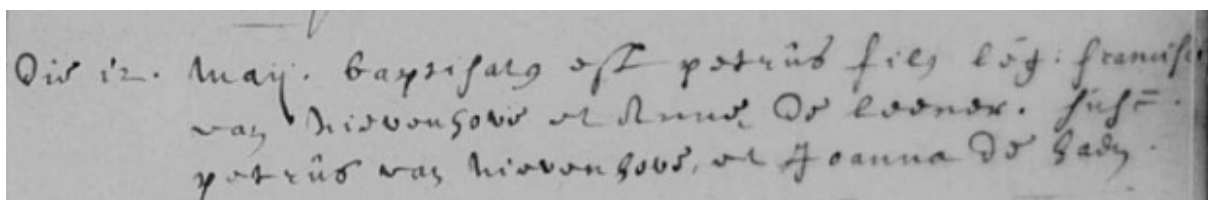 Die 12. May. baptisatus est petrus filius leg: francisci
van Nievenhove et Anne de Leener. susc.
petrus van Nievenhove, et Joanna de